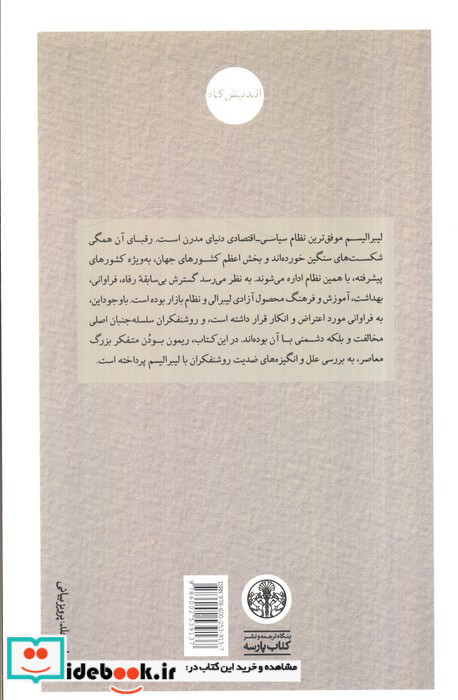 اندیش‌کده
لیبرالیسم موفق‌ترین نظام سیاسی-اقتصادی دنیای مدرن است. رقبای آن همگی
شکست‌های سنگین خورده‌اند و بخش اعظم کشورهای جهان، به‌ویژه کشورهای
پیشرفته، با همین نظام اداره می‌شوند. به نظر می‌رسد گسترش بی‌سابقۀ رفاه، فراوانی،
بهداشت، آموزش و فرهنگ محصول آزادی لیبرالی و نظام بازار بوده است. باوجوداین،
به فراوانی مورد اعتراض و انکار قرار داشته است، و روشنفکران سلسله‌جنبان اصلی
مخالفت و بلکه دشمنی با آن بوده‌اند. در این‌کتاب، ریمون بودُن متفکر بزرگ
معاصر، به بررسی علل و انگیزه‌های ضدیت روشنفکران با لیبرالیسم پرداخته است.
جلد: پرویز بیانی
ISBN: 978-600-253-913-7
9786002539137
بنگاه ترجمه و نشر
کتاب پارسه
مشاهده و خرید این کتاب در:
idebook.ir